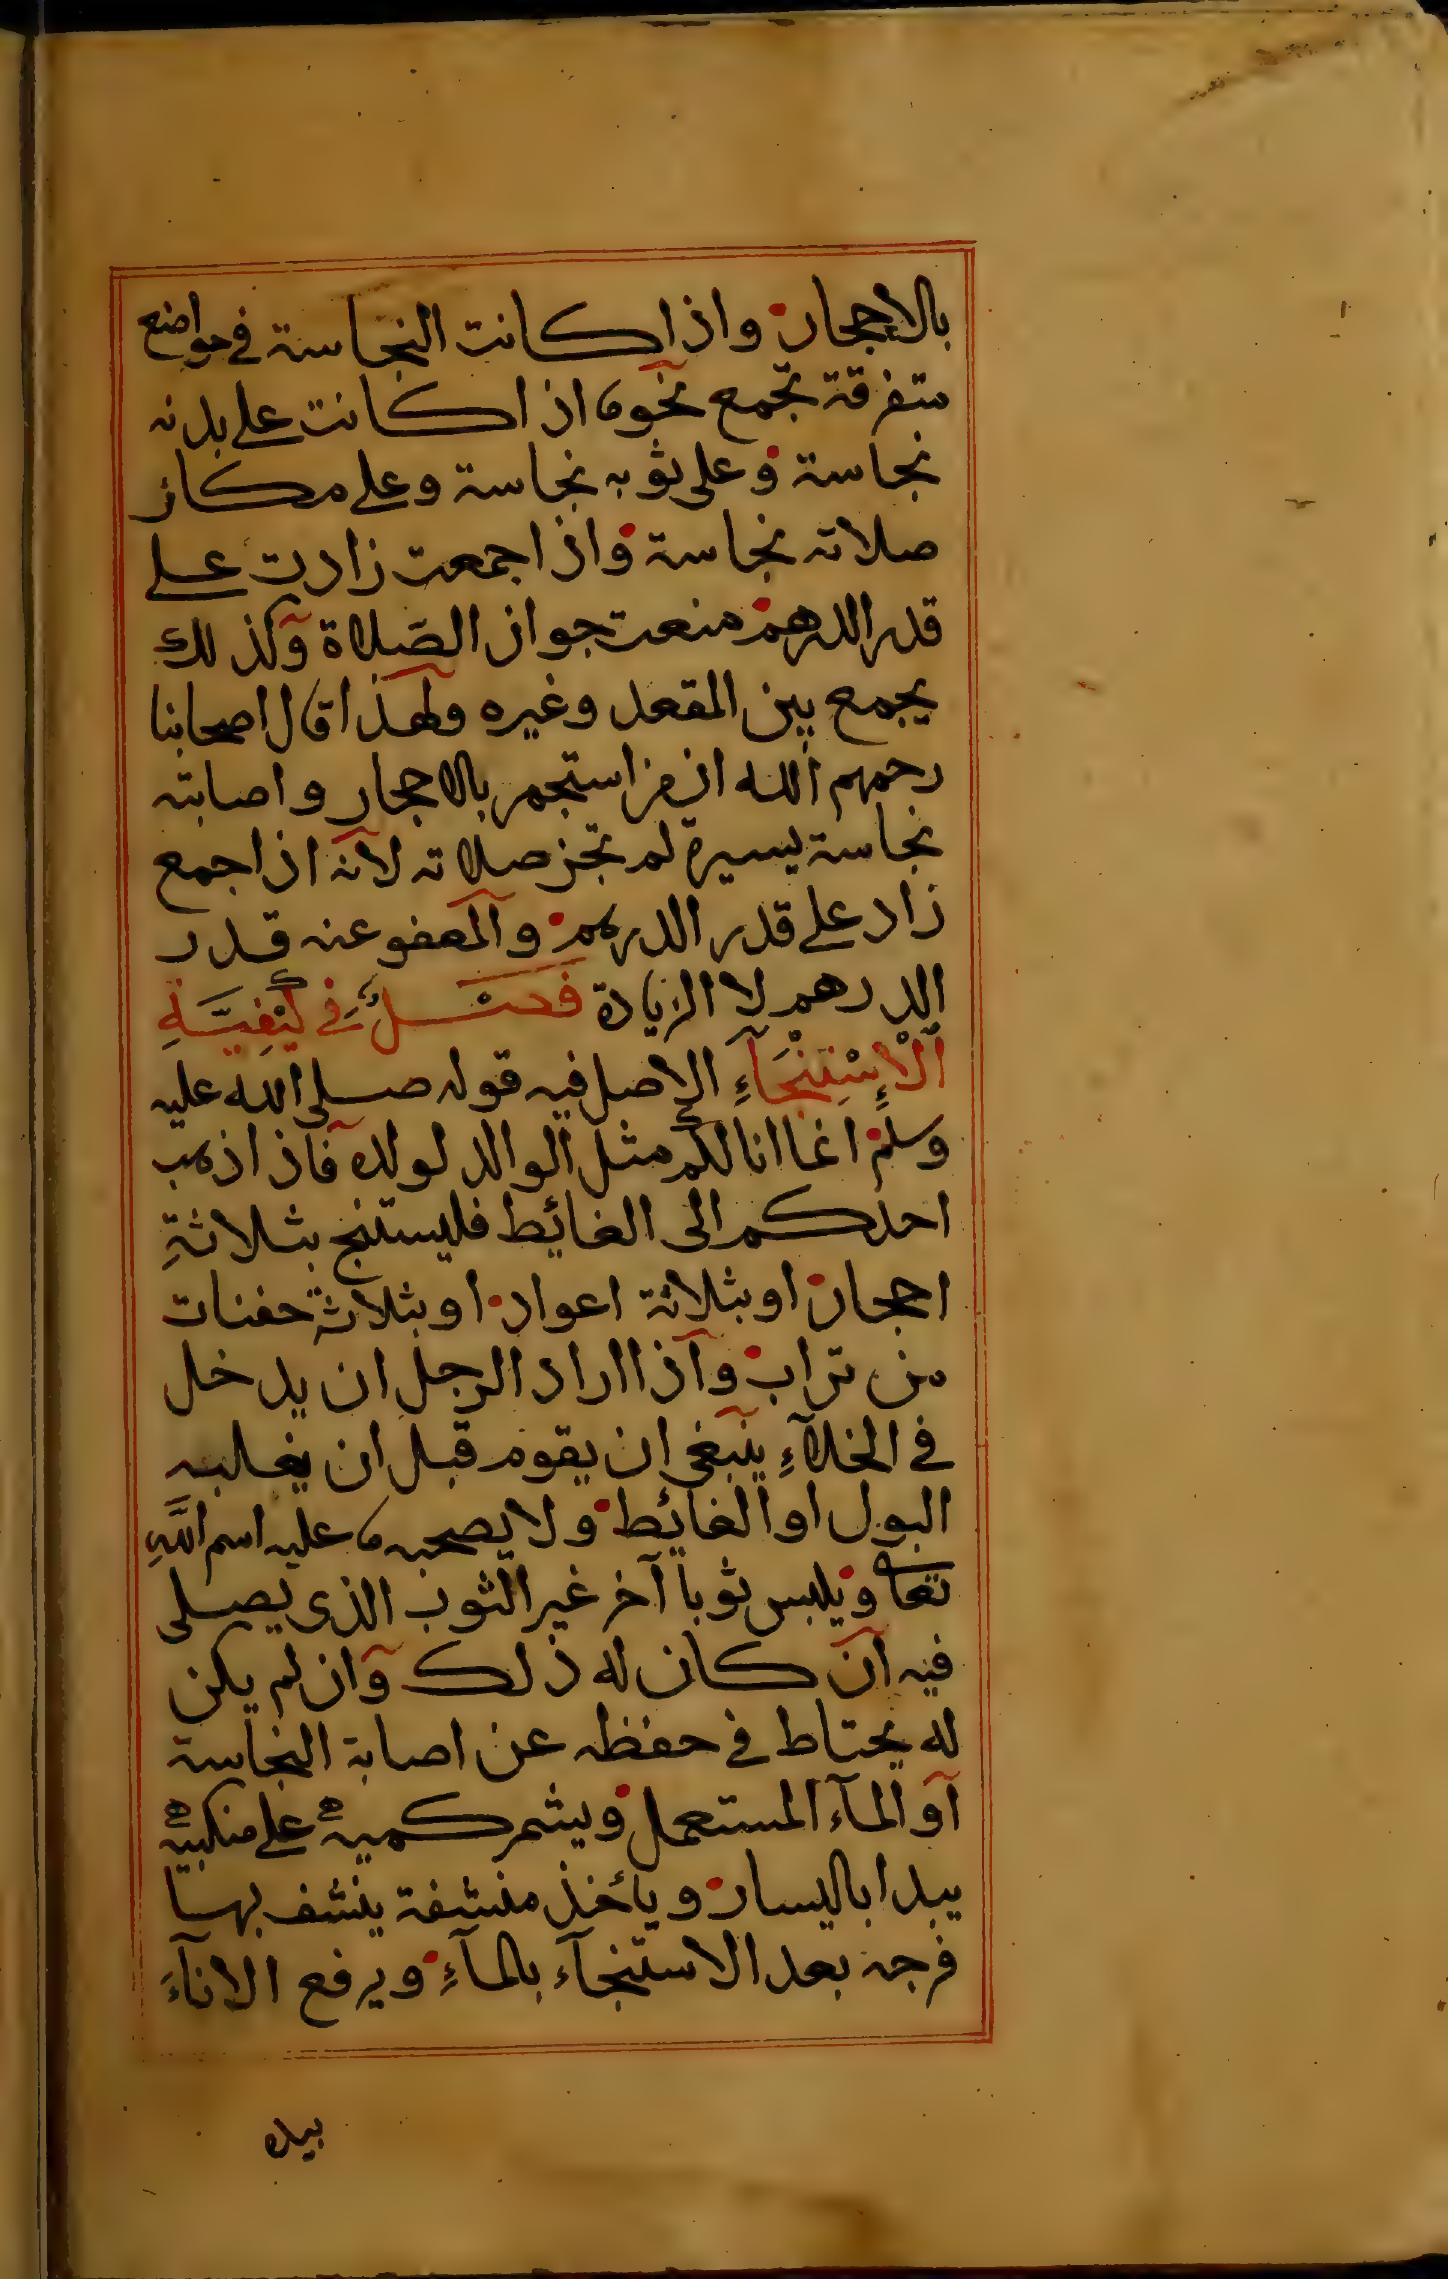 بالاحجار واذا كانت النجاسة في مواضع
متفرقة تجمع نحو ما اذا كانت على بدنه
نجاسة وعلى ثوبه نجاسة وعلى مكان
صلاته نجاسة واذا جمعت زادت على
قدر الدرهم منعت جواز الصلاة وكذلك
يجمع بين المقعد وغيره ولهذا قال اصحابنا
رحمهم الله ان من استجمر بالاحجار واصابته
نجاسة يسيرة لم تجز صلاته لانه اذا جمع
زاد على قدر الدرهم والمعفو عنه قدر
الدرهم لا الزيادة فصل في كيفية
الاستنجآء الاصل فيه قوله صلى الله عليه
وسلم انما انا لكم مثل الوالد لولده فاذا ذهب
احدكم الى الغائط فليستنج بثلاثة
احجار او بثلاثة اعواد او بثلاثة حفنات
من تراب واذا اراد الرجل ان يدخل
في الخلآء ينبغي ان يقوم قبل ان يغلبه
البول او الغائط ولا يصحبه ما عليه اسم الله
تعا ويلبس ثوبا آخر غير الثوب الذى يصلى
فيه ان كان له ذلك وان لم يكن
له يحتاط في حفظه عن اصابة النجاسة
او المآء المستعمل ويشمر كميه على منكبيه
يبدا باليسار وياخذ منشفة ينشف بها
فرجه بعد الاستنجآء بالمآء ويرفع الانآء
بيده